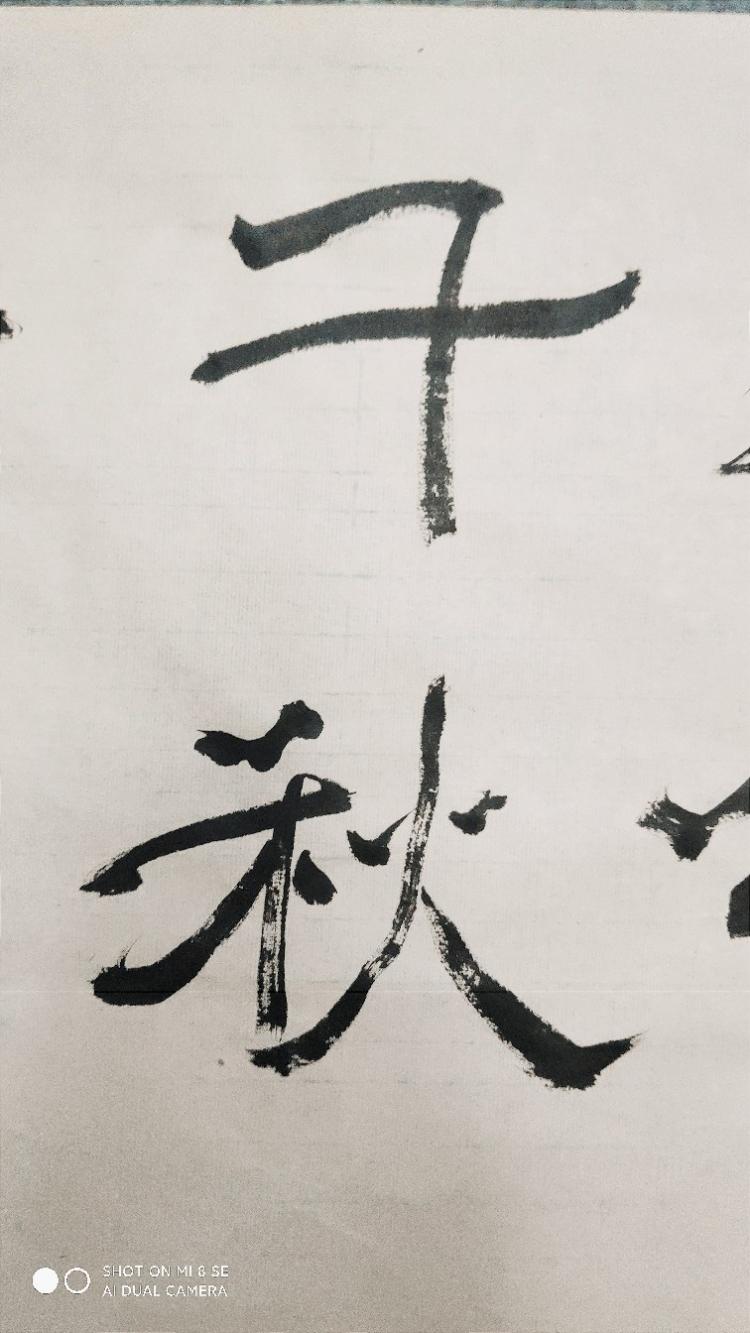 千
秋
SHOT ON MI 8 SE
AI DUAL CAMERA